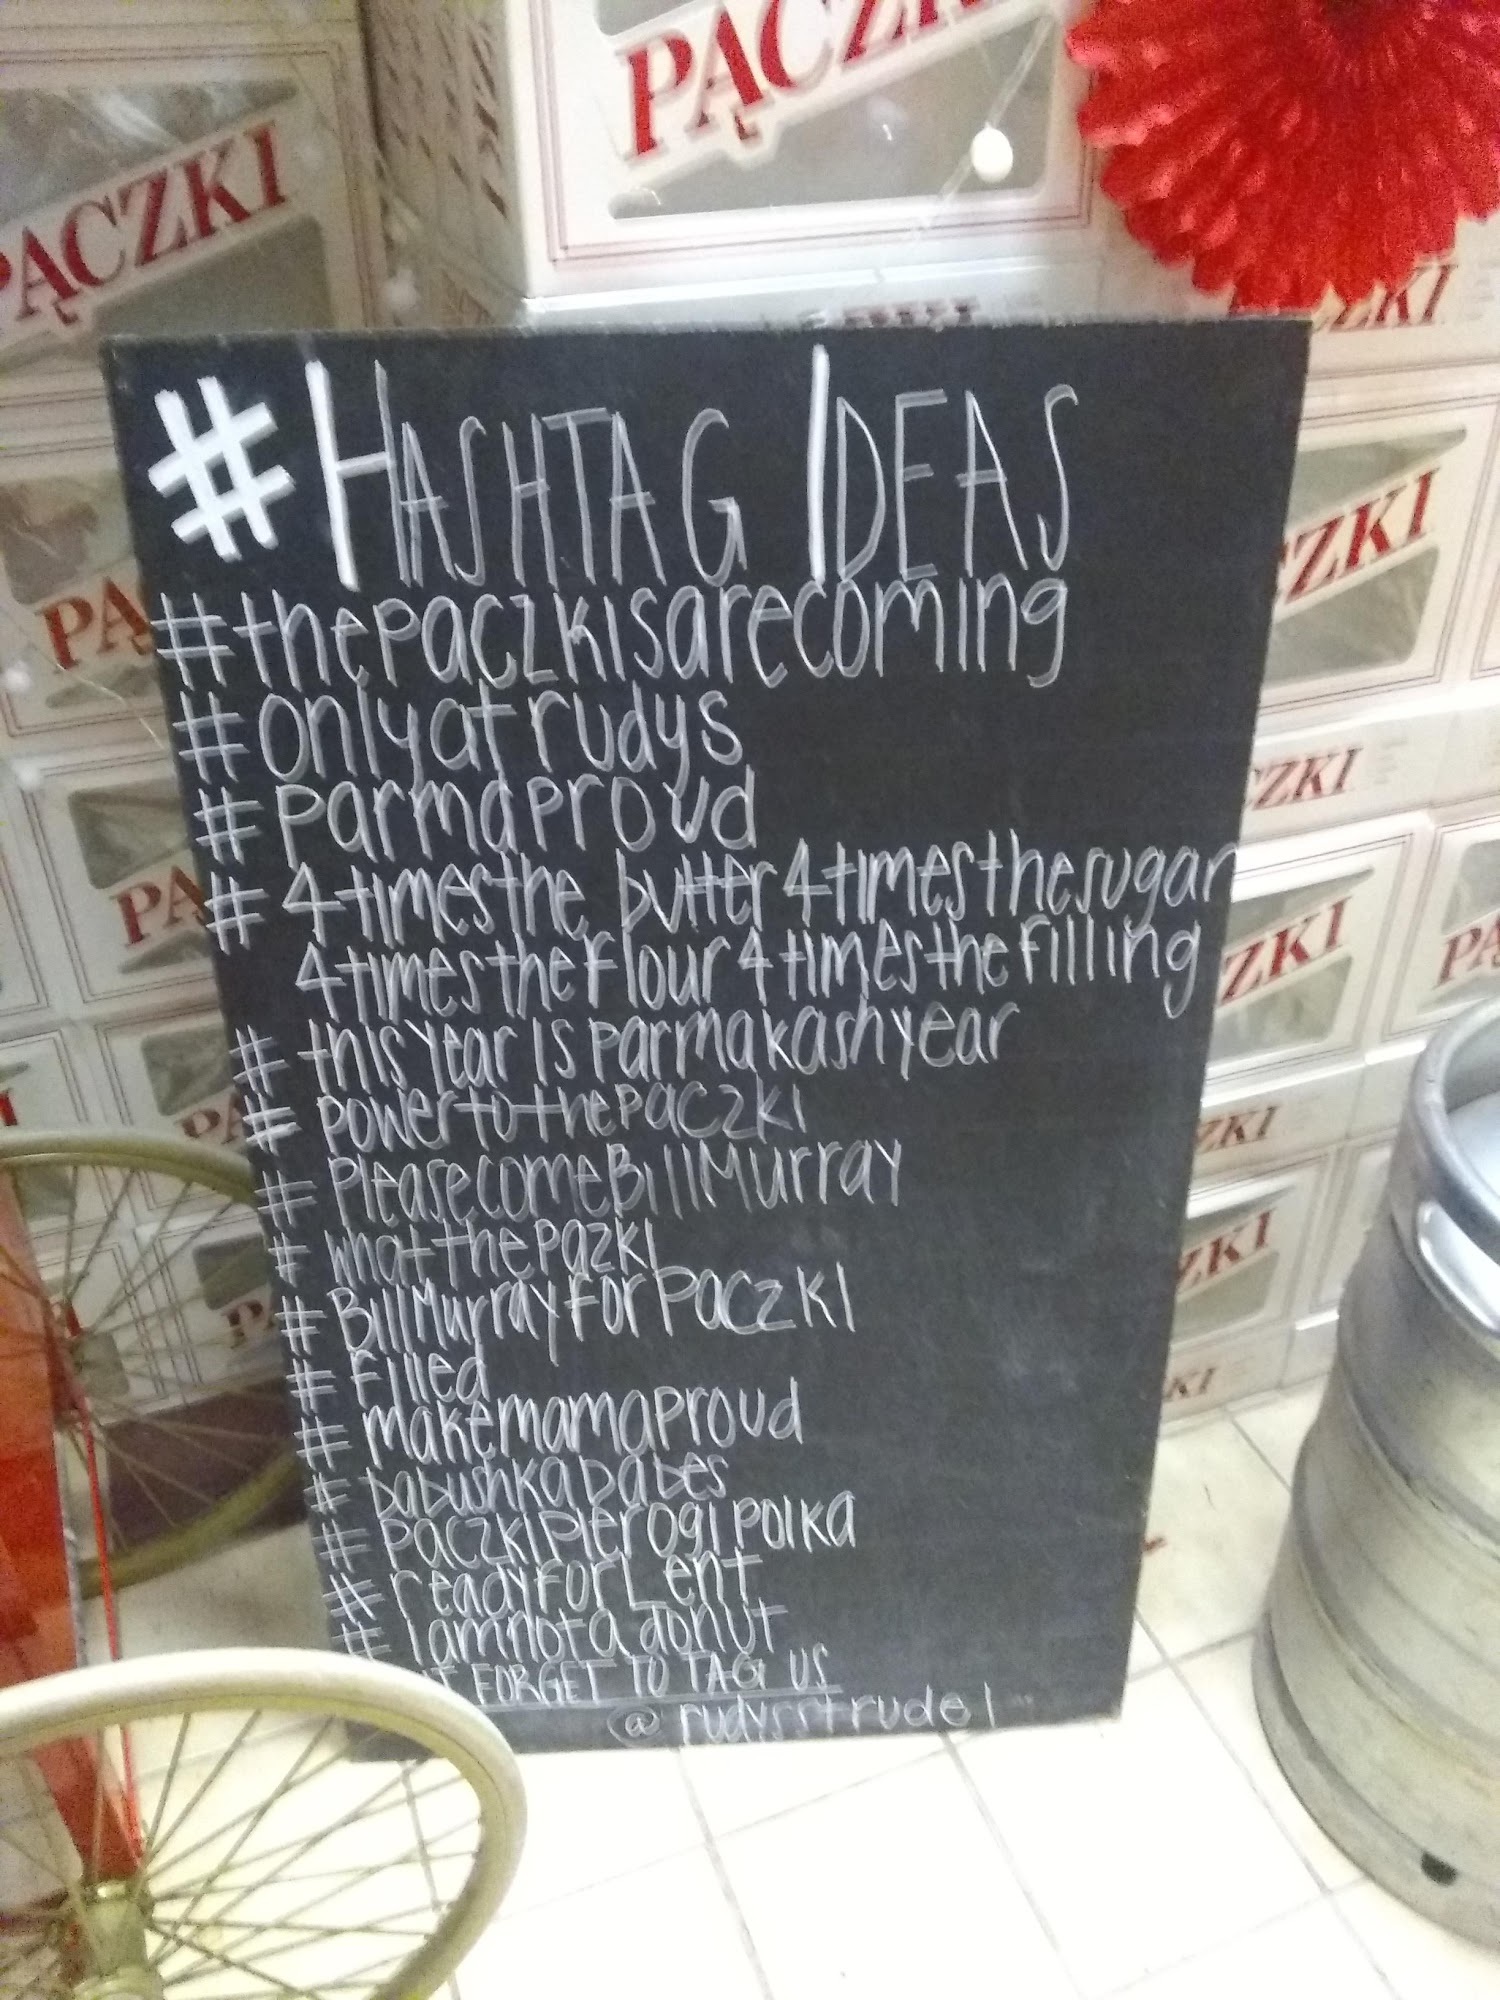 PĄCZKI
PĄCZKI
# HASHTAG IDEAS
#thepaczkisarecoming
#onlyatrudys
#parmaproud
# 4timesthe butter4timesthesugar
4timestheflour4timesthefilling
# thisyearisparmakashyear
# powertothepaczki
# PleasecomeBillMurray
# whatthepazki
# BillMurrayforpaczki
# filled
# makemamaproud
# babushkababes
# paczkipierogipolka
# readyforLent
# Iamnotadonut
FORGET TO TAG US
@rudysstrudel
CZKI
ZKI
CZKI
ZKI
ZKI
ZKI
ZKI
KI
PĄ
PĄ
PĄ